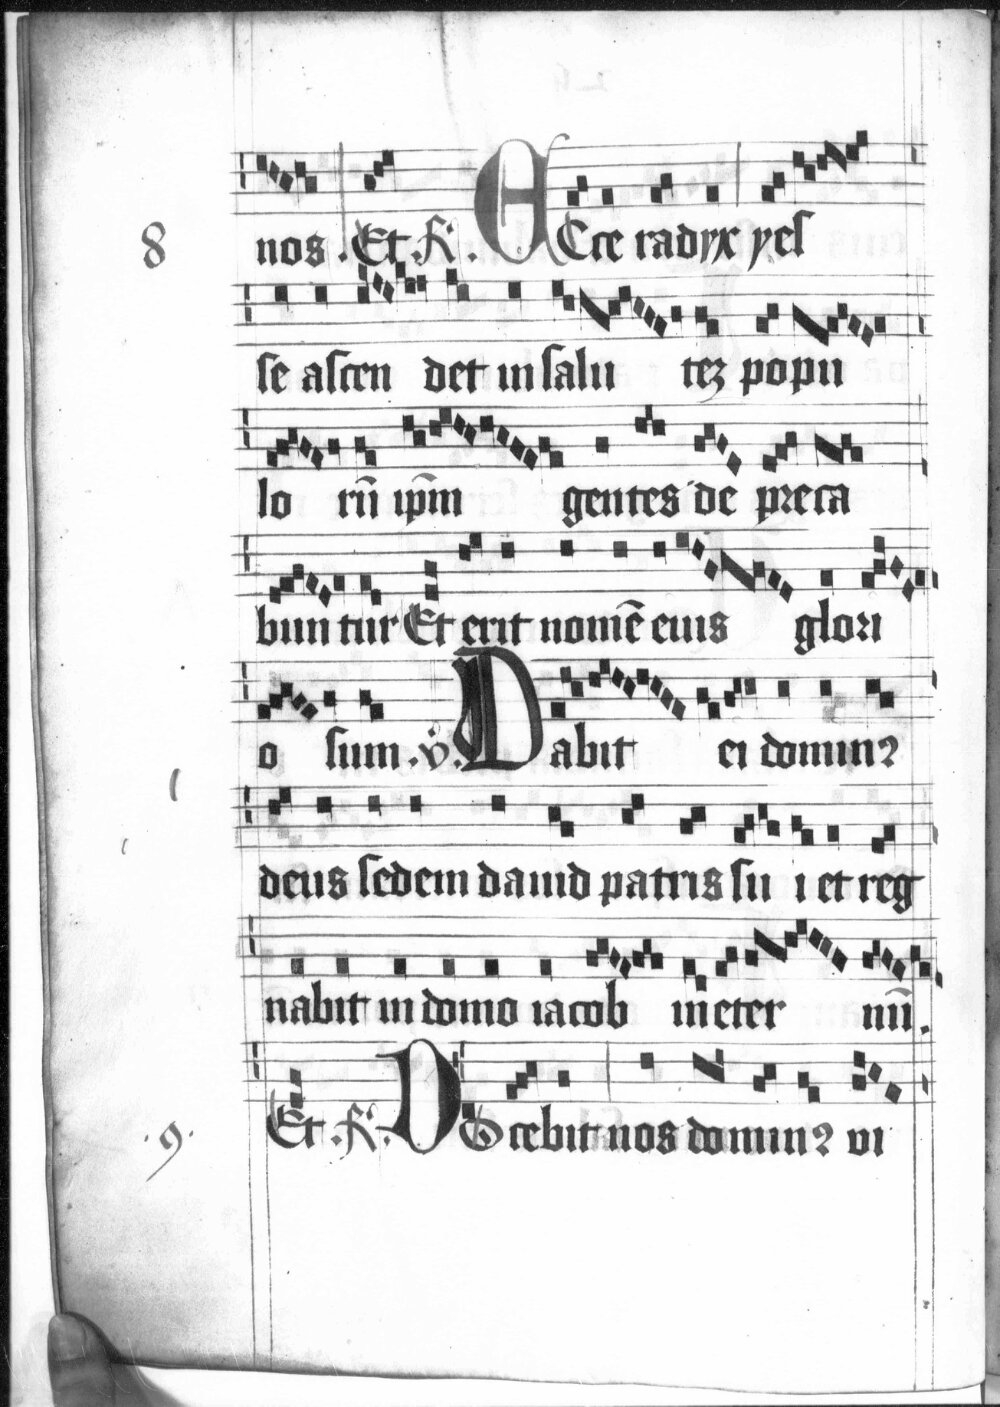 8
nos . Et . R . ECce radyx yes
se ascen det in salu tez popu
lo rū ip̄m gentes de preca
bun tur Et erit nomē eius glori
o sum . v . Dabit ei domin9
deus sedem dauid patris su i et reg
nabit in domo iacob in eter nū .
Et . R . DOcebit nos domin9 vi
. 9 .